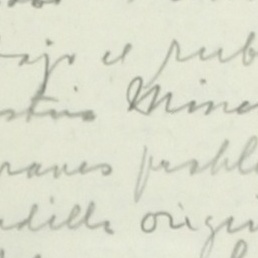 bajo el rub
stria Mine
raves probl
adilla origin